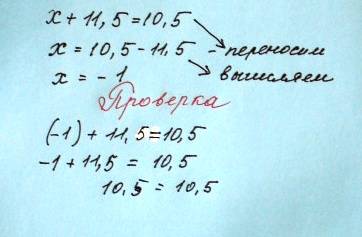 x + 11,5 = 10,5
x = 10,5 - 11,5 - переносим
x = - 1 вычисляем
Проверка
(-1) + 11,5 = 10,5
-1 + 11,5 = 10,5
10,5 = 10,5